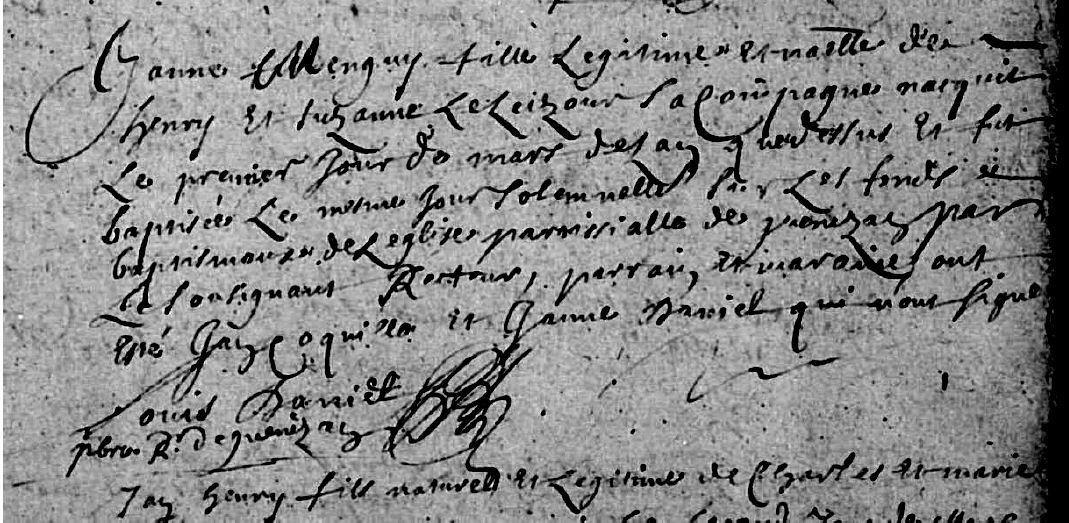 Janne Menguy fille Legitime et nalle de
henry Et suzanne LeLeizour sa Compagne nacquit
Le premier Jour de mars de lan que dessus Et fut
baptisée Le mesme Jour solemnelle sur Les fonds
baptismaux de Leglise parrissialle de par
Le soulsignant Recteur, parrain et maraine ont
esté Jan Coquil et Janne Daniel qui n'ont signé
Louis Daniel
pbre R. de quenezan
Jan henry fils naturell et Legitime de Charles et marie